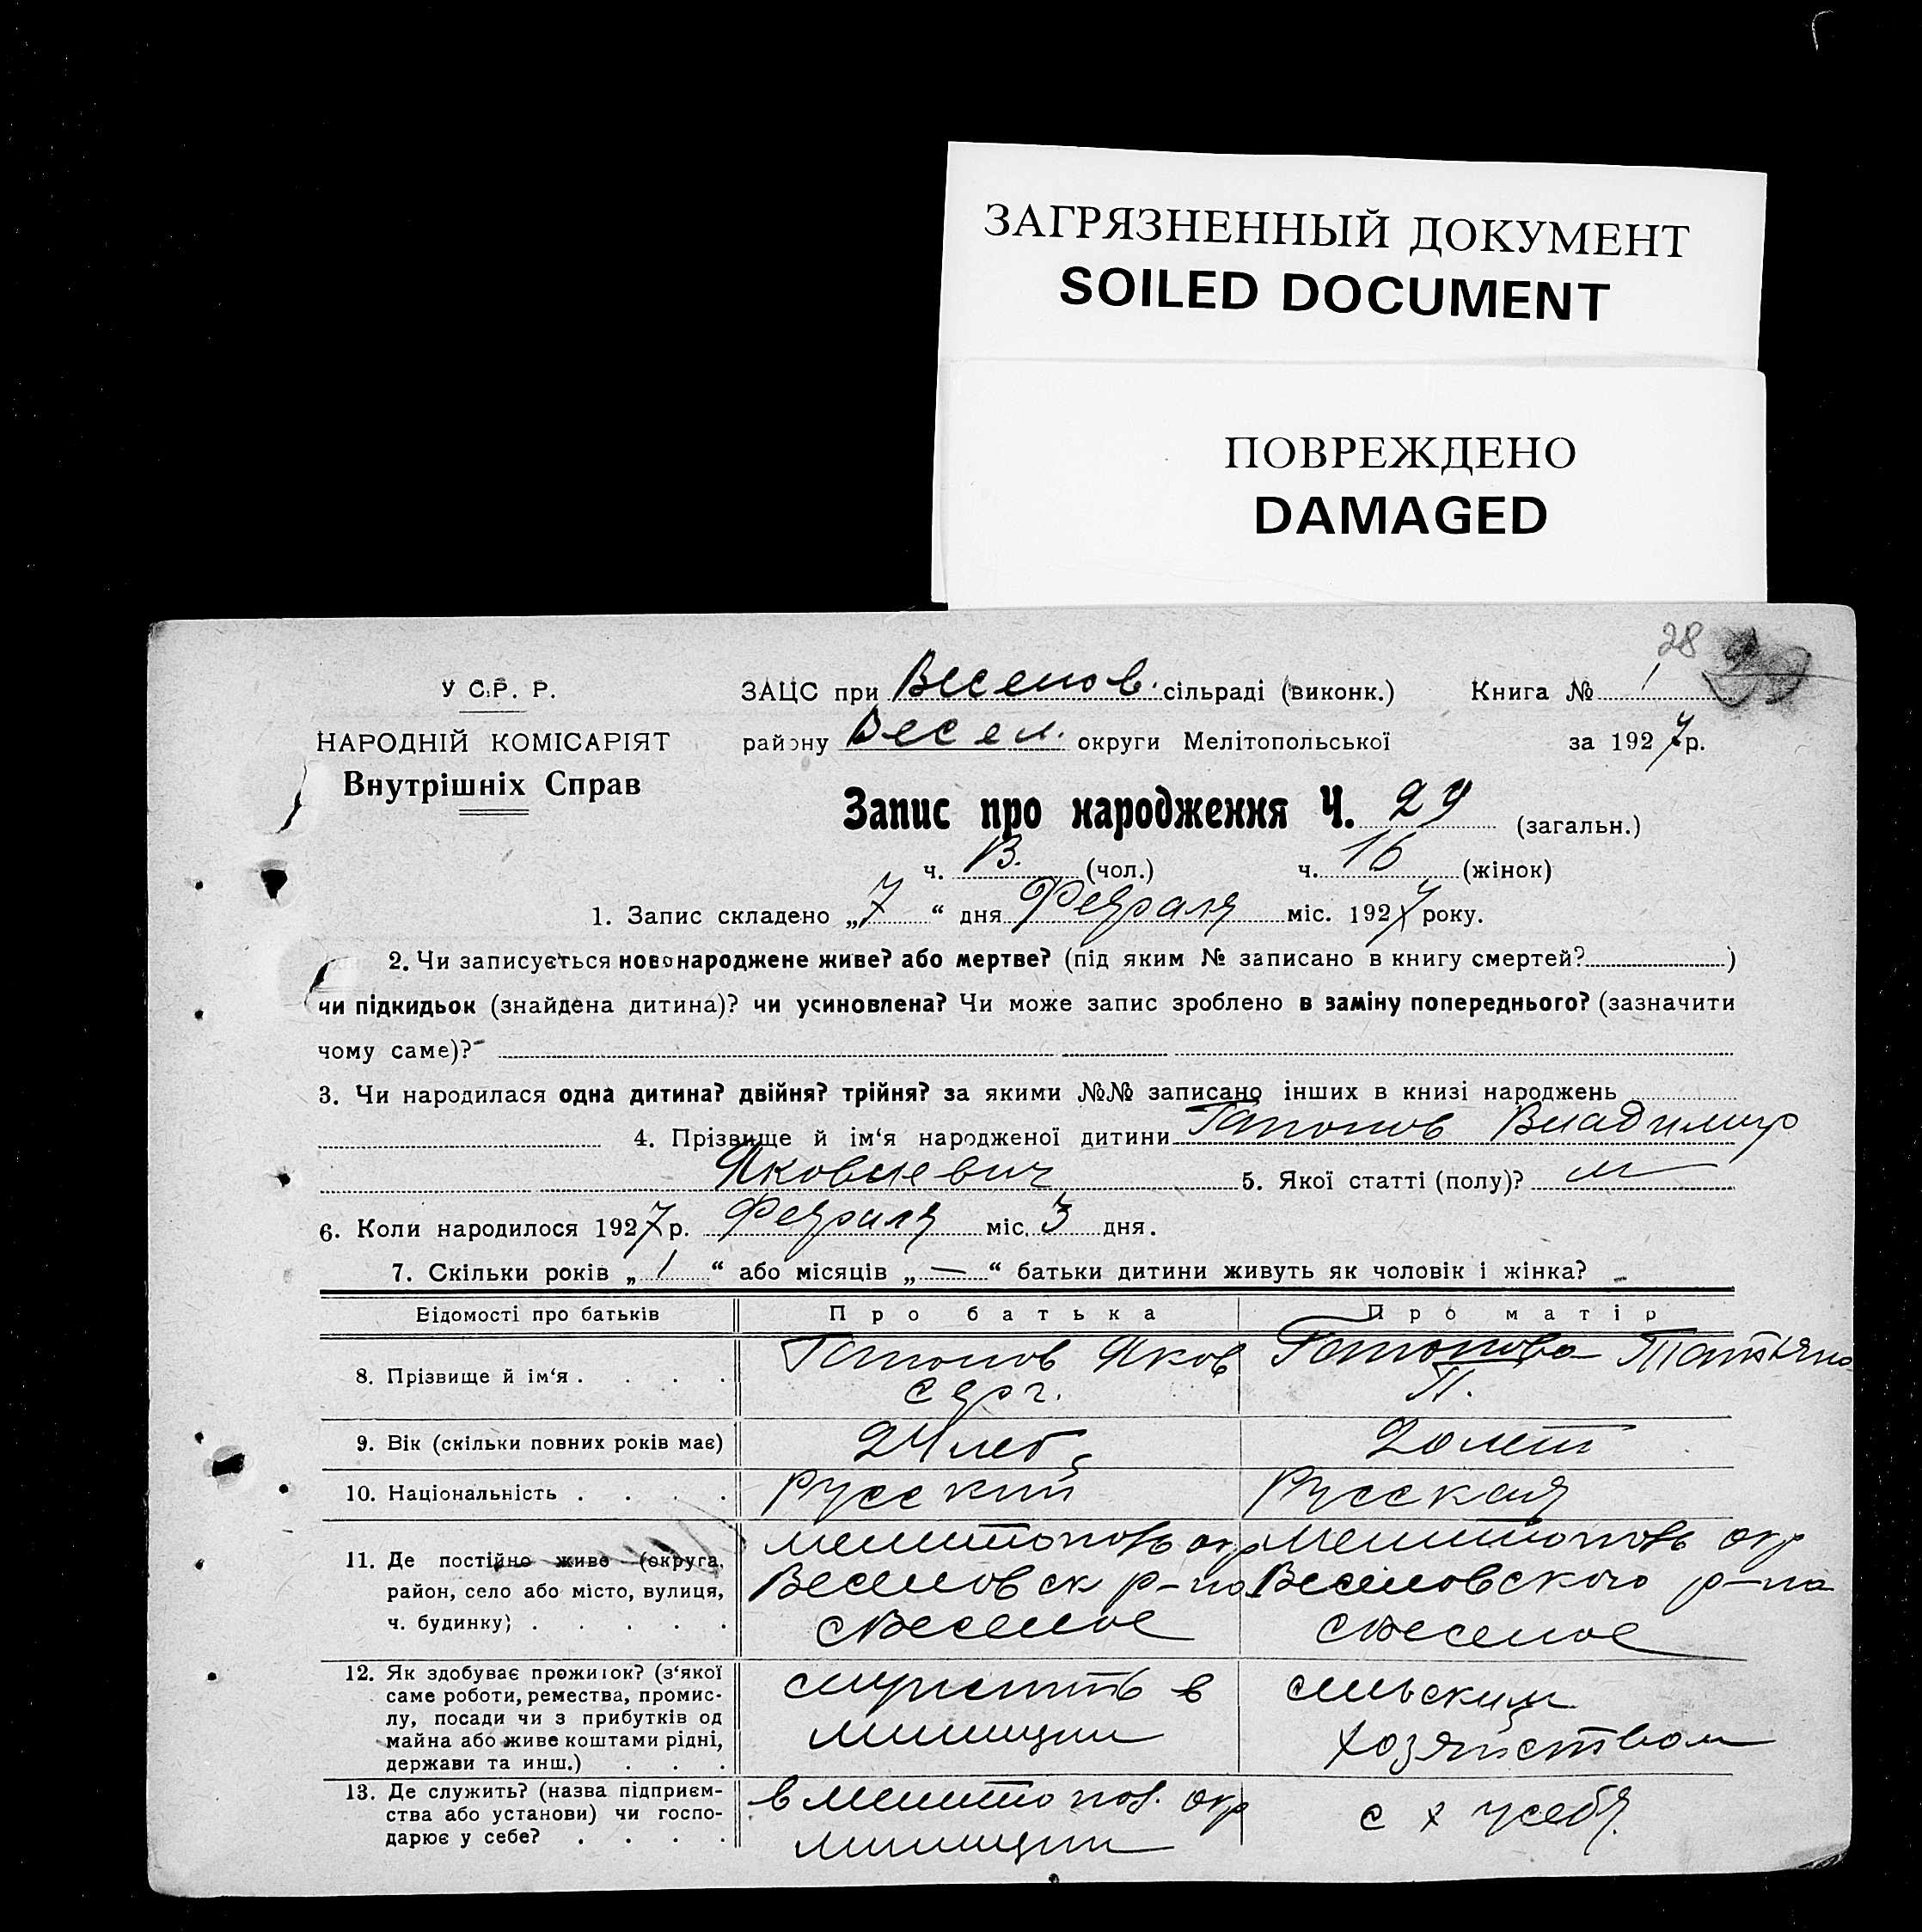 ЗАГРЯЗНЕННЫЙ ДОКУМЕНТ
SOILED DOCUMENT
ПОВРЕЖДЕНО
DAMAGED
28
У С.Р. Р.
ЗАЦС при Веселов. сільраді (виконк.) Книга № 1
НАРОДНІЙ КОМІСАРІЯТ
району Весел. округи Мелітопольської за 1927 р.
Внутрішніх Справ
Запис про народження Ч. 29 (загальн.)
ч. 13. (чол.) ч. 16 (жінок)
1. Запис складено „7“ дня Февраля міс. 1927 року.
2. Чи записується новонароджене живе? або мертве? (під яким № записано в книгу смертей? )
чи підкидьок (знайдена дитина)? чи усиновлена? Чи може запис зроблено в заміну попереднього? (зазначити
чому саме)?
3. Чи народилася одна дитина? двійня? трійня? за якими №№ записано інших в книзі народжень
4. Прізвище й ім‘я народженої дитини Гапонов Владимир
Яковлевич 5. Якої статті (полу)? м
6. Коли народилося 1927 р. Февраля міс. 3 дня.
7. Скільки років „1“ або місяців „—“ батьки дитини живуть як чоловік і жінка?
Відомості про батьків Про батька Про матір
8. Прізвище й ім‘я . . . . Гапонов Яков Гапонова Татьяна
Серг. П.
9. Вік (скільки повних років має) 24 лет 20 лет
10. Національність . . . . Русский Русская
11. Де постійно живе (округа, Мелитополь окр Мелитополь окр
район, село або місто, вулиця, Веселовск р-на Веселовского р-на
ч. будинку) . . . . . с Веселое с Веселое
12. Як здобуває прожиток? (з‘якої
саме роботи, ремества, промис- служить в сельским
лу, посади чи з прибутків од
майна або живе коштами рідні, милиции хозяйством
держави та инш.) . . .
13. Де служить? (назва підприєм- в Мелитопол. окр
ства або установи) чи госпо- с х у себя
дарює у себе? . . . . милиции